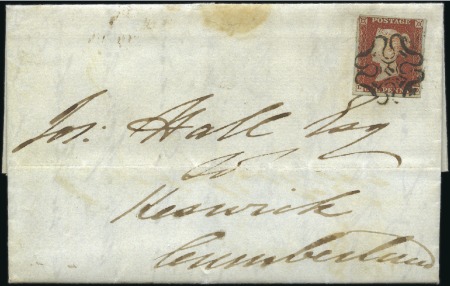 POSTAGE
Jos: Hall Esq
Keswick
Cumberland